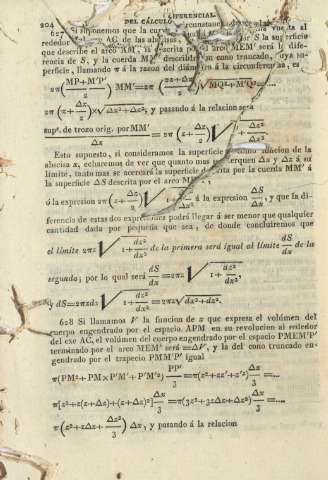 204
DEL CÁLCULO DIFERENCIAL.
627 Si suponemos que la
rededor AC, de las abscisas, S la superficie
que describe el arco AM, descrita por el arco MEM' será la dife-
rencia de S, y la cuerda MM' describirá un cono truncado, cuya su-
perficie, llamando π á la razon del diámetro á la circunferencia, es
2π(MP+M'P'/2) MM'=2π(2z+Δz/2) √MQ²+M'Q²=....
2π(z+Δz/2)×√Δx²+Δz²; y pasando á la relacion será
sup.ᵉ de trozo orig. por MM'/Δx = 2π (z+Δz/2) √Δx²/Δx²+Δz²/Δx².
Esto supuesto, si consideramos la superficie como funcion de la
abscisa x, echaremos de ver que quanto mas se acerquen Δx y Δz á su
límite, tanto mas se acercará la superficie descrita por la cuerda MM' á
la superficie ΔS descrita por el arco MEM',
á la expresion 2π(z+Δz/2)√1+Δz²/Δx² á la expresion ΔS/Δx, y que la di-
ferencia de estas dos expresiones podrá llegar á ser menor que qualquier
cantidad dada por pequeña que sea, de donde concluiremos que
el límite 2πz√1+dz²/dx² de la primera será igual al límite dS/dx de la
segunda; por lo qual será dS/dx=2πz√1+dz²/dx²,
y dS=2πzdx√1+dz²/dx²=2πz√dx²+dz².
628 Si llamamos V la funcion de x que expresa el volúmen del
cuerpo engendrado por el espacio APM en su revolucion al rededor
del exe AC, el volúmen del cuerpo engendrado por el espacio PMEM'P'
terminado por el arco MEM' será =ΔV, y la del cono truncado en-
gendrado por el trapecio PMM'P' igual
π(PM²+PM×P'M'+P'M'²)PP'/3=π(z²+zz'+z'²)Δx/3=....
π[z²+z(z+Δz)+(z+Δz)²]Δx/3=π(3z²+3zΔz+Δz²)Δx/3=....
π(z²+zΔz+Δz²/3) Δx, y pasando á la relacion